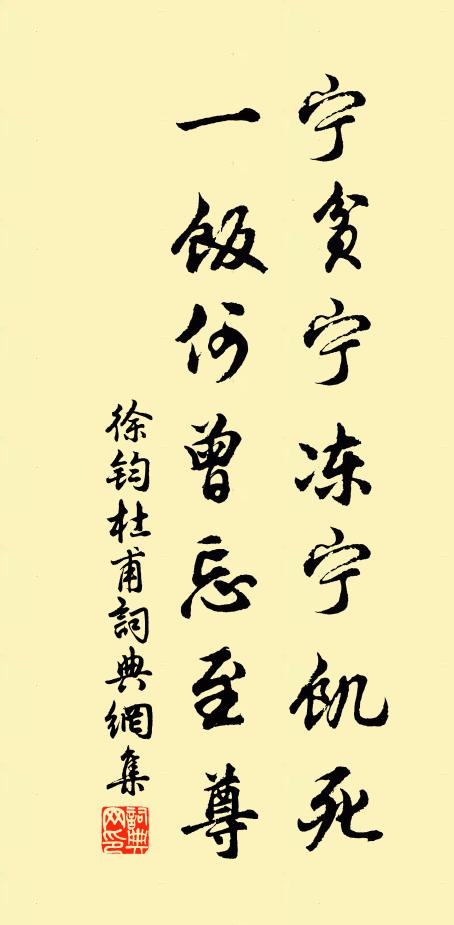 宁贫宁冻宁饥死
一饭何曾忘至尊
徐钧杜甫詞典網集
詞典网印